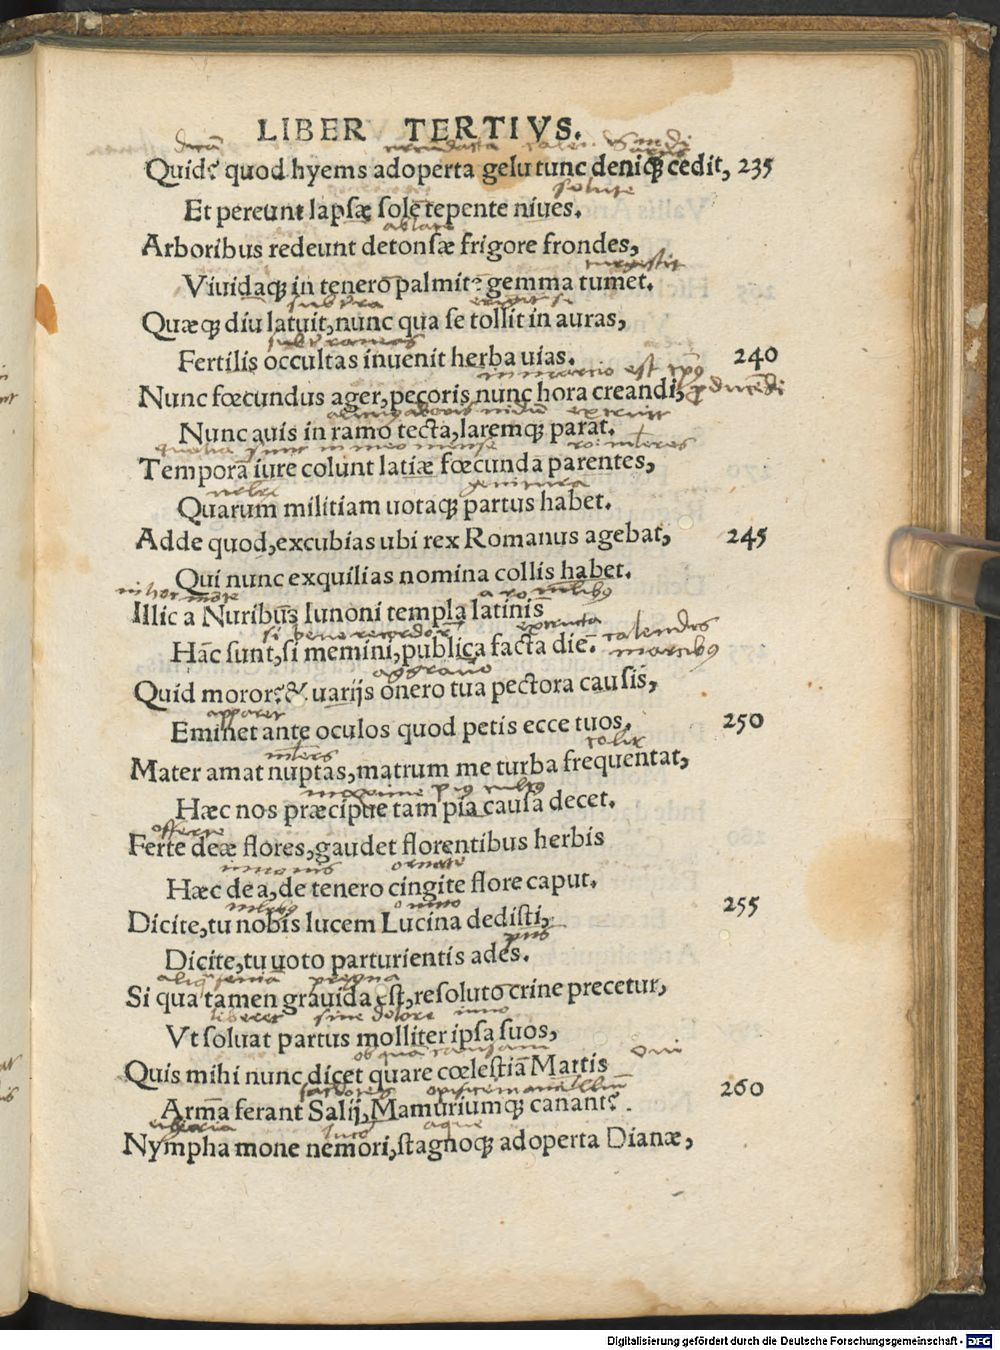 LIBER TERTIVS.
Quid? quod hyems adoperta gelu tunc deniq; cedit, 235
solute
Et pereunt lapsæ sole tepente niues.
Arboribus redeunt detonsæ frigore frondes,
Viuidaq; in tenero palmite gemma tumet.
Quæq; diu latuit, nunc qua se tollit in auras,
Fertilis occultas inuenit herba uias. 240
in marcio est
Nunc fœcundus ager, pecoris nunc hora creandi,
Nunc auis in ramo tecta, laremq; parat.
Tempora iure colunt latiæ fœcunda parentes,
genitura
Quarum militiam uotaq; partus habet.
Adde quod, excubias ubi rex Romanus agebat, 245
Qui nunc exquilias nomina collis habet.
Illic a Nuribus Iunoni templa latinis
si bene recordor
Hac sunt, si memini, publica facta die. calendis
marcibus
Quid moror? & uarijs onero tua pectora causis,
apparet
Eminet ante oculos quod petis ecce tuos. 250
Mater amat nuptas, matrum me turba frequentat,
maxime
Hæc nos præcipue tam pia causa decet.
offerte
Ferte deæ flores, gaudet florentibus herbis
iunonis ornate
Hæc dea, de tenero cingite flore caput.
Dicite, tu nobis lucem Lucina dedisti, 255
Dicite, tu uoto parturientis ades.
pregna
Si qua tamen grauida est, resoluto crine precetur,
liberet sine dolore
Vt soluat partus molliter ipsa suos,
Quis mihi nunc dicet quare cœlestia Martis
Arma ferant Salij, Mamuriumq; canant? 260
aque
Nympha mone nemori, stagnoq; adoperta Dianæ,
Digitalisierung gefördert durch die Deutsche Forschungsgemeinschaft - DFG